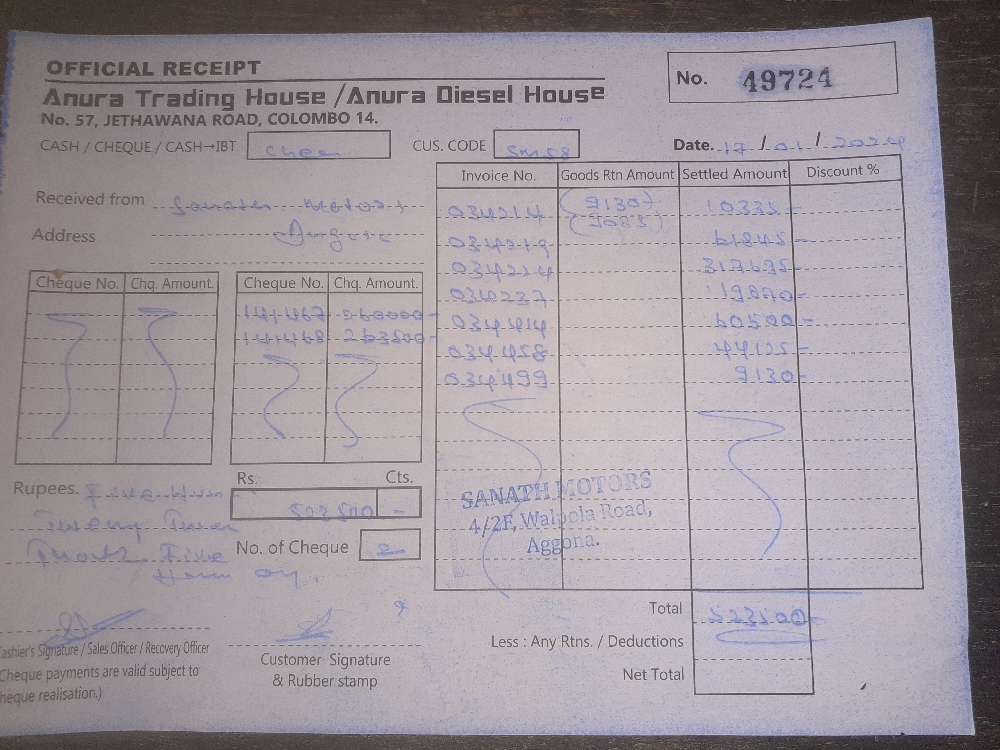 OFFICIAL RECEIPT
No. 49724
Anura Trading House / Anura Diesel House
No. 57, JETHAWANA ROAD, COLOMBO 14.
CASH / CHEQUE / CASH→IBT
CUS. CODE
Date. 17 / 01 / 2024
Received from Sanath Motors
Address
Invoice No. Goods Rtn Amount Settled Amount Discount %
034214 (9130/-
(9085) 10335-
61845-
034224 317695-
034237 19870-
034414 60500-
034458 44125-
034499 9130-
Cheque No. Chq. Amount. Cheque No. Chq. Amount.
141467 260000-
141468 263500-
Rupees. Five Hun
Rs. Cts.
523500 -
Five
No. of Cheque 2
SANATH MOTORS
4/2F, Walpola Road,
Aggona.
Total 523500-
Less : Any Rtns. / Deductions
Net Total
Cashier's Signature / Sales Officer / Recovery Officer
Cheque payments are valid subject to
cheque realisation.)
Customer Signature
& Rubber stamp